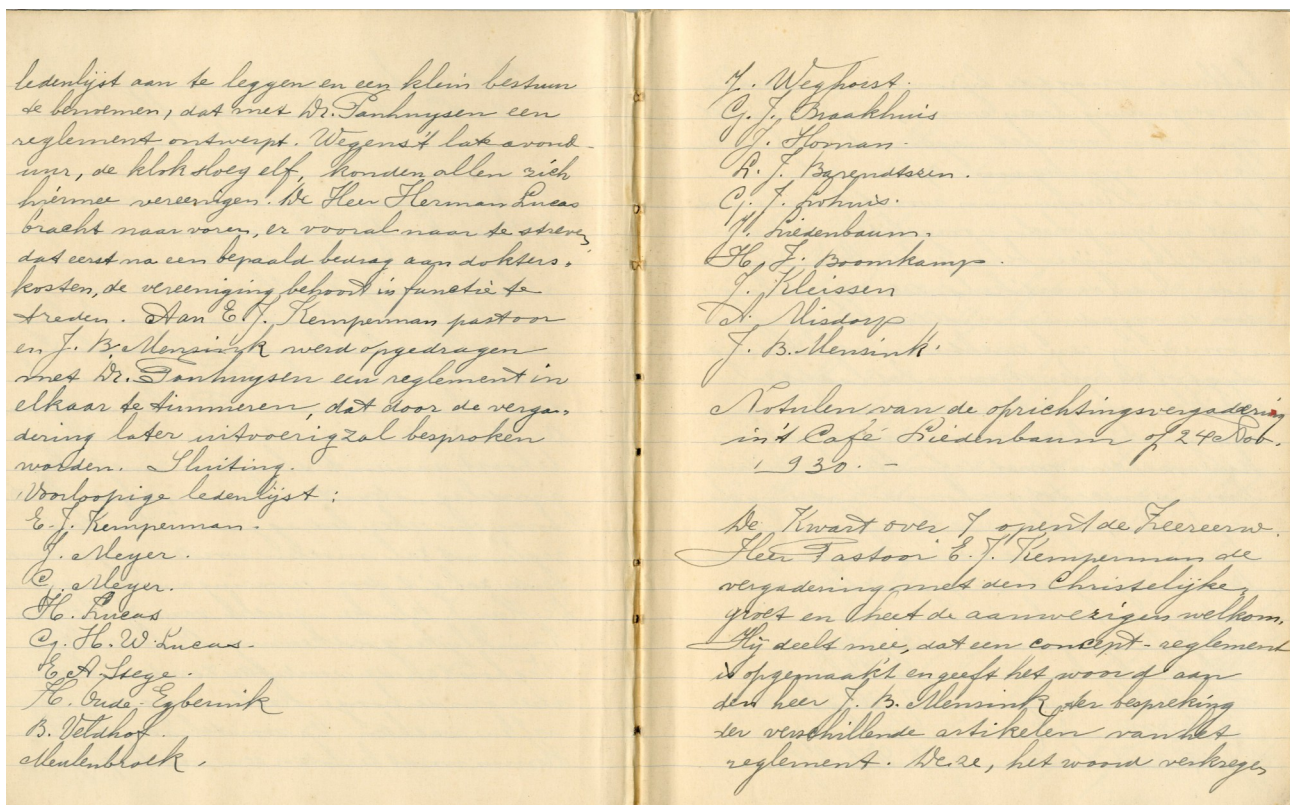 ledenlijst aan te leggen en een klein bestuur
te benoemen, dat met Dr. Panhuysen een
reglement ontwerpt. Wegens 't late avond-
uur, de klok sloeg elf, konden allen zich
hiermee vereenigen. De Heer Herman Lucas
bracht naar voren, er vooral naar te streven,
dat eerst na een bepaald bedrag aan dokters-
kosten, de vereeniging behoort in functie te
treden. Aan E. J. Kemperman pastoor
en J. B. Mensink werd opgedragen
met Dr. Panhuysen een reglement in
elkaar te timmeren, dat door de verga-
dering later uitvoerig zal besproken
worden. Sluiting.
Voorloopige ledenlijst:
E. J. Kemperman.
J. Meyer.
G. Meyer.
H. Lucas
G. H. W. Lucas.
E. A. Stege.
H. Oude-Egberink
B. Veldhof.
Meulenbroek.
J. Weghorst.
G. J. Braakhuis
J. Homan.
L. J. Barendtszen.
G. J. Lohuis.
J. Liedenbaum.
H. J. Boomkamp.
J. Kleissen
A. Misdorp
J. B. Mensink.
Notulen van de oprichtingsvergadering
in 't Café Liedenbaum op 24 Nov.
1930. -
De Kwart over 7 opent de Zeereerw.
Heer Pastoor E. J. Kemperman de
vergadering met den Christelijke
groet en heet de aanwezigen welkom.
Hij deelt mee, dat een concept-reglement
is opgemaakt en geeft het woord aan
den heer J. B. Mensink ter bespreking
der verschillende artikelen van het
reglement. Deze, het woord verkregen